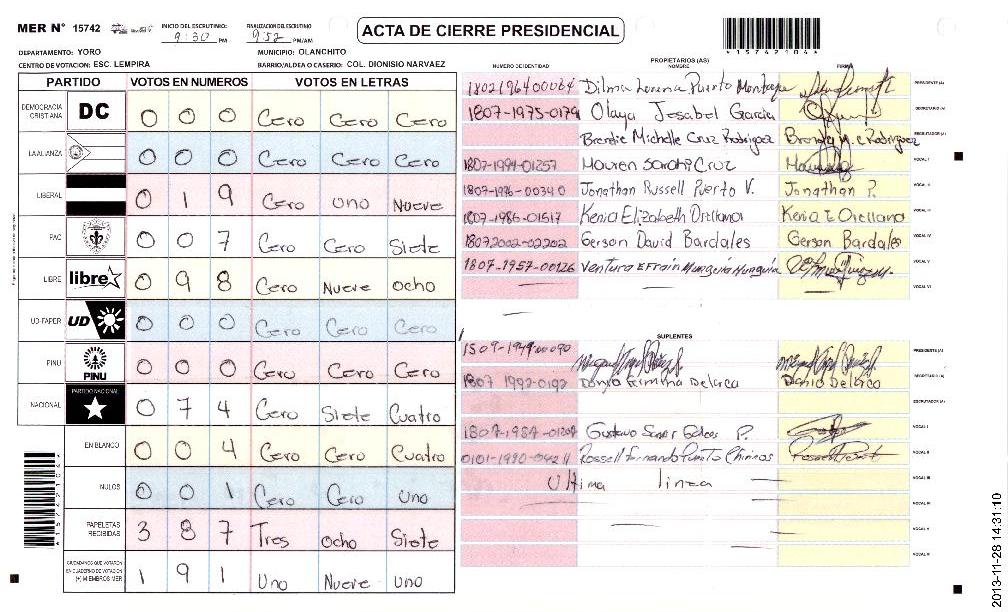 MER N° 15742 INICIO DEL ESCRUTINIO 9:30 PM FINALIZACION DEL ESCRUTINIO 9:52 PM/AM ACTA DE CIERRE PRESIDENCIAL
DEPARTAMENTO: YORO MUNICIPIO: OLANCHITO
CENTRO DE VOTACION: ESC. LEMPIRA BARRIO/ALDEA O CASERIO: COL. DIONISIO NARVAEZ
PARTIDO VOTOS EN NUMEROS VOTOS EN LETRAS
DEMOCRACIA CRISTIANA DC 0 0 0 Cero Cero Cero
LA ALIANZA 0 0 0 Cero Cero Cero
LIBERAL 0 1 9 Cero uno Nueve
PAC 0 0 7 Cero Cero Siete
LIBRE libre 0 9 8 Cero Nueve ocho
UD-FAPER UD 0 0 0 Cero Cero Cero
PINU PINU 0 0 0 Cero Cero Cero
NACIONAL PARTIDO NACIONAL 0 7 4 Cero Siete Cuatro
EN BLANCO 0 0 4 Cero Cero Cuatro
NULOS 0 0 1 Cero Cero uno
PAPELETAS RECIBIDAS 3 8 7 Tres ocho Siete
CIUDADANOS QUE VOTARON EN CUADERNO DE VOTACION (+) MIEMBROS MER 1 9 1 Uno Nueve uno
PROPIETARIOS (AS)
NUMERO DE IDENTIDAD NOMBRE FIRMA
1802196400064 Dilma Lorena Puerto PRESIDENTE (A)
1807-1975-0179 Olaya Jesabel Garcia SECRETARIO (A)
Michelle Cruz Rodriguez ESCRUTADOR (A)
1807-1994-01257 Mauren Sarahi Cruz VOCAL I
1807-1996-00340 Jonathan Russell Puerto V. Jonathan P. VOCAL II
1807-1986-01517 Kenia Elizabeth Orellana Kenia E Orellana VOCAL III
1807-2002-02202 Gerson David Bardales Gerson Bardales VOCAL IV
1807-1957-00126 Ventura Efrain Munguia Munguia VOCAL V
VOCAL VI
SUPLENTES
PRESIDENTE (A)
1807 1992-0192 SECRETARIO (A)
ESCRUTADOR (A)
Gustavo P. VOCAL I
Fernando Puerto Chirinos VOCAL II
Ultima linea VOCAL III
VOCAL IV
VOCAL V
VOCAL VI
*15742104*
2013-11-28 14:31:10